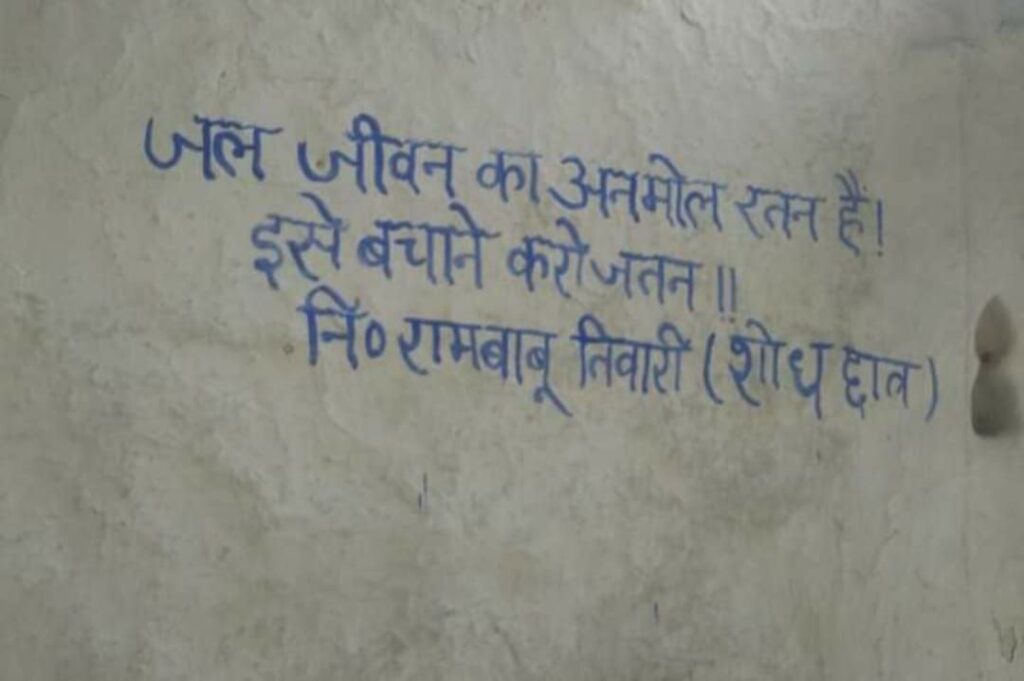 जल जीवन का अनमोल रतन हैं!
इसे बचाने करो जतन ||
नि० रामबाबू तिवारी (शोध छात्र)